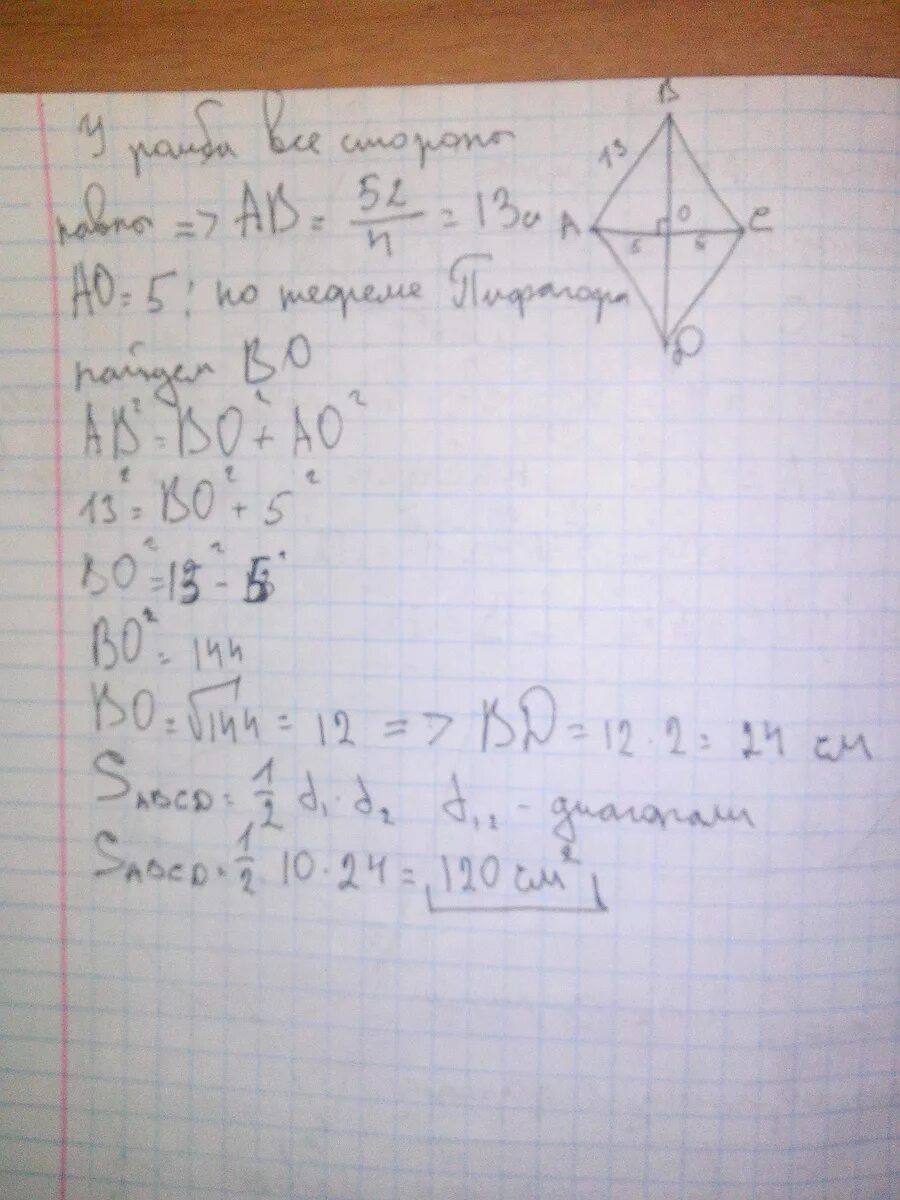 У ромба все стороны
равны => AB = 52/4 = 13см
AO = 5; по теореме Пифагора
найдем BO
AB² = BO² + AO²
13² = BO² + 5²
BO² = 13² - 5²
BO² = 144
BO = √144 = 12 => BD = 12 · 2 = 24 см
S ABCD = 1/2 d₁ · d₂ d₁,₂ - диагонали
S ABCD = 1/2 10 · 24 = 120 см²
B
13
A
O
C
5
5
D